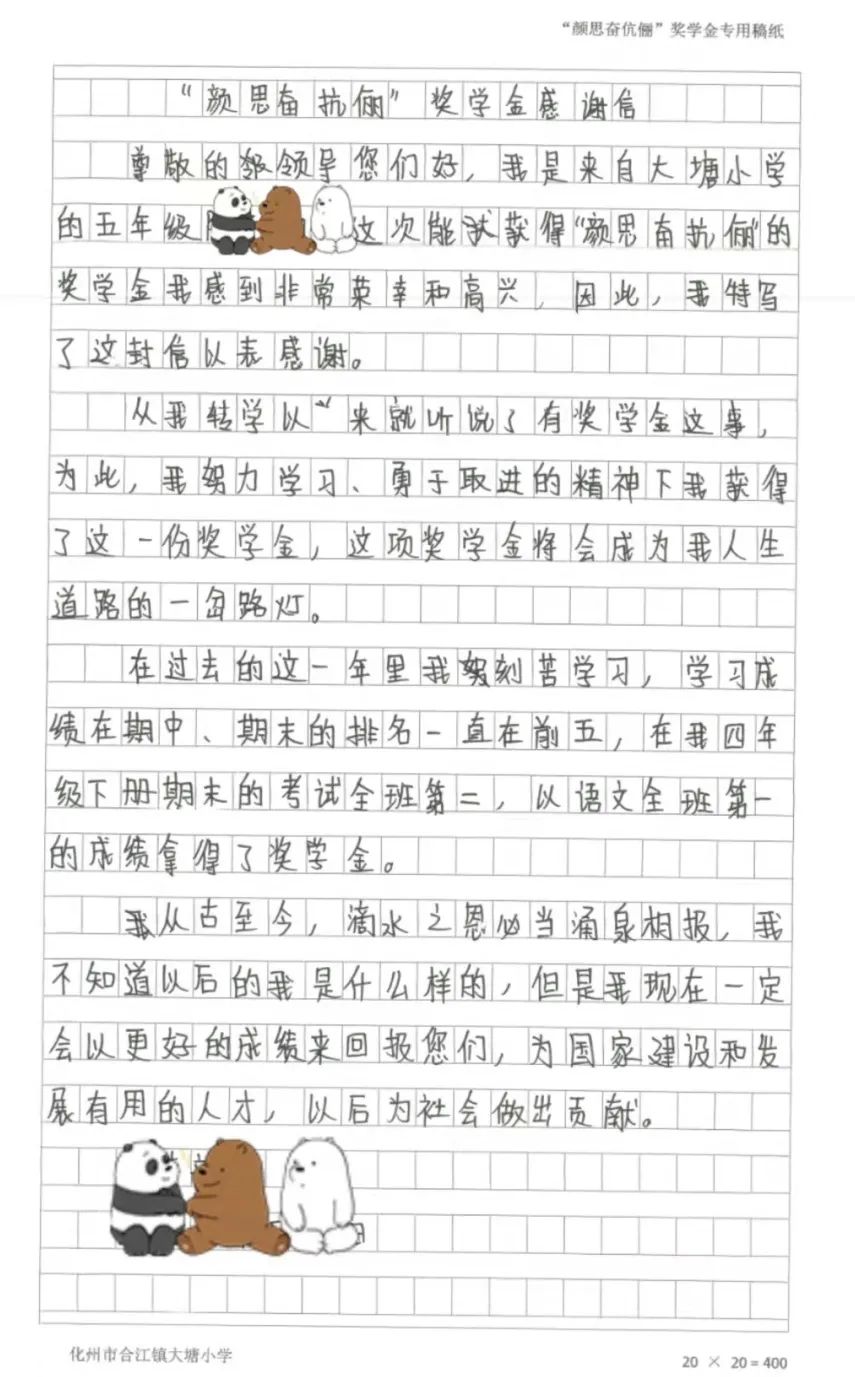 “颜思奋伉俪”奖学金专用稿纸
“颜思奋抗俪”奖学金感谢信
尊敬的各级领导您们好，我是来自大塘小学
的五年级 这次能够获得“颜思奋抗俪”的
奖学金我感到非常荣幸和高兴，因此，我特写
了这封信以表感谢。
从我转学以来就听说了有奖学金这事，
为此，我努力学习、勇于取进的精神下我获得
了这一份奖学金，这项奖学金将会成为我人生
道路的一台路灯。
在过去的这一年里我刻苦学习，学习成
绩在期中、期末的排名一直在前五，在我四年
级下册期末的考试全班第二，以语文全班第一
的成绩拿得了奖学金。
我从古至今，滴水之恩必当涌泉相报，我
不知道以后的我是什么样的，但是我现在一定
会以更好的成绩来回报您们，为国家建设和发
展有用的人才，以后为社会做出贡献。
化州市合江镇大塘小学
20 × 20 = 400